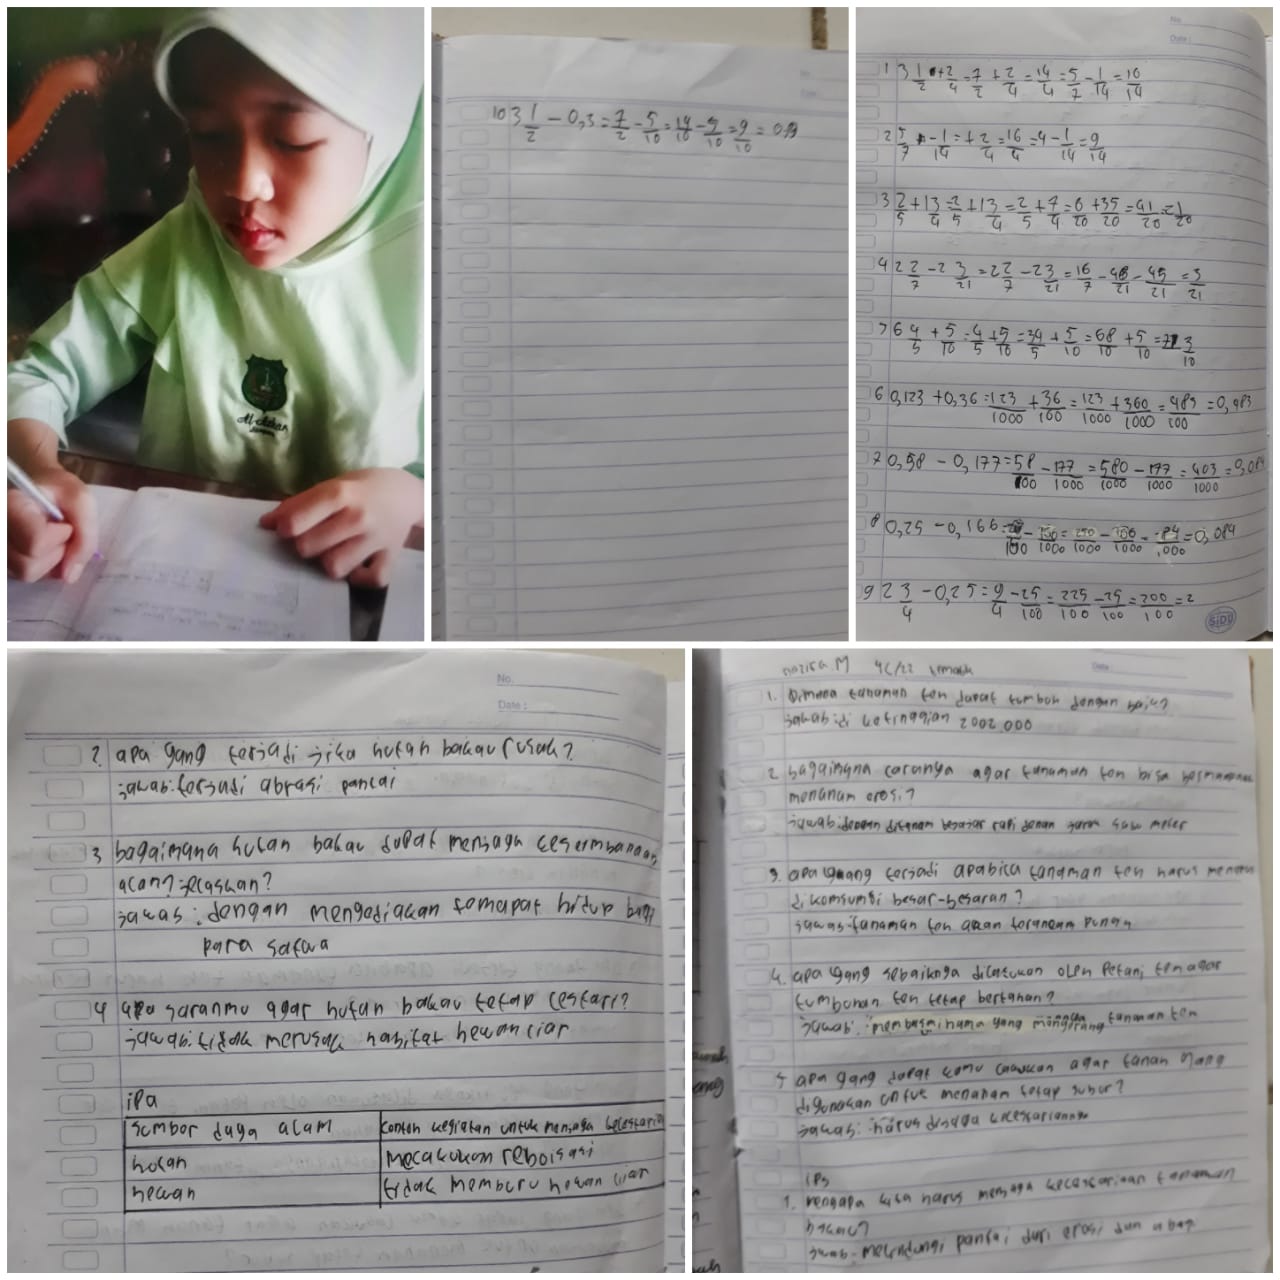 Al-Azhar
10 3 1/2 - 0,3 = 7/2 - 5/10 = 14/10 - 5/10 = 9/10 =
No.
Date :
1 3 1/2 + 2/4 = 7/2 + 2/4 = 14/4 = 5/7 - 1/14 = 10/14
2 5/7 - 1/14 = + 2/4 = 16/4 = 4 - 1/14 = 9/14
3 2/5 + 13/4 = 2/5 + 13/4 = 2/5 + 7/4 = 0/20 + 35/20 = 41/20 = 1/20
4 2 2/7 - 2 3/21 = 2 2/7 - 2 3/21 = 16/7 - 48/21 - 45/21 = 3/21
5 6 4/5 + 5/10 = 4/5 + 5/10 = 34/5 + 5/10 = 68/10 + 5/10 = 3/10
6 0,123 + 0,36 = 123/1000 + 36/100 = 123/1000 + 360/1000 = 483/100 = 0,483
7 0,58 - 0,177 = 58/100 - 177/1000 = 580/1000 - 177/1000 = 403/1000 =
8 0,25 - 0,166 = /100 - /1000 = 250/1000 - 166/1000 - 84/1000 = 0,084
9 2 3/4 - 0,25 = 9/4 - 25/100 = 225/100 - 25/100 = 200/100 = 2
SiDU
No.
Date :
2. apa yang terjadi jika hutan bakau rusak?
jawab: terjadi abrasi pantai
3 bagaimana hutan bakau dapat menjaga
alam? jelaskan?
jawab: dengan mengediakan temapat hidup bagi
para satwa
4 apa saranmu agar hutan bakau tetap lestari?
jawab: tidak merusak habitat hewan liar
ipa
sumber daya alam contoh kegiatan untuk menjaga
hutan melakukan reboisasi
hewan tidak memburu hewan liar
nazira.M 4C/22
Date :
1. Dimana tanaman teh dapat tumbuh dengan baik?
jawab: di ketinggian 2002.000
2 bagaimana caranya agar tanaman teh bisa
menanam erosi?
jawab: dengan ditanam rapi jarak satu meter
3. apa yang terjadi apabila tanaman teh harus
di komsumsi besar-besaran?
jawab: tanaman teh akan terancam punah
4. apa yang sebaiknya dilakukan oleh Petani teh agar
tumbuhan teh tetap bertahan?
jawab: membasmi hama yang tanaman teh
5 apa yang dapat kamu lakukan agar tanah yang
digunakan untuk menanam tetap subur?
jawab: harus dijaga
IPS
1. mengapa kita harus menjaga tanaman
bakau?
jawab: melindungi pantai dari erosi dan